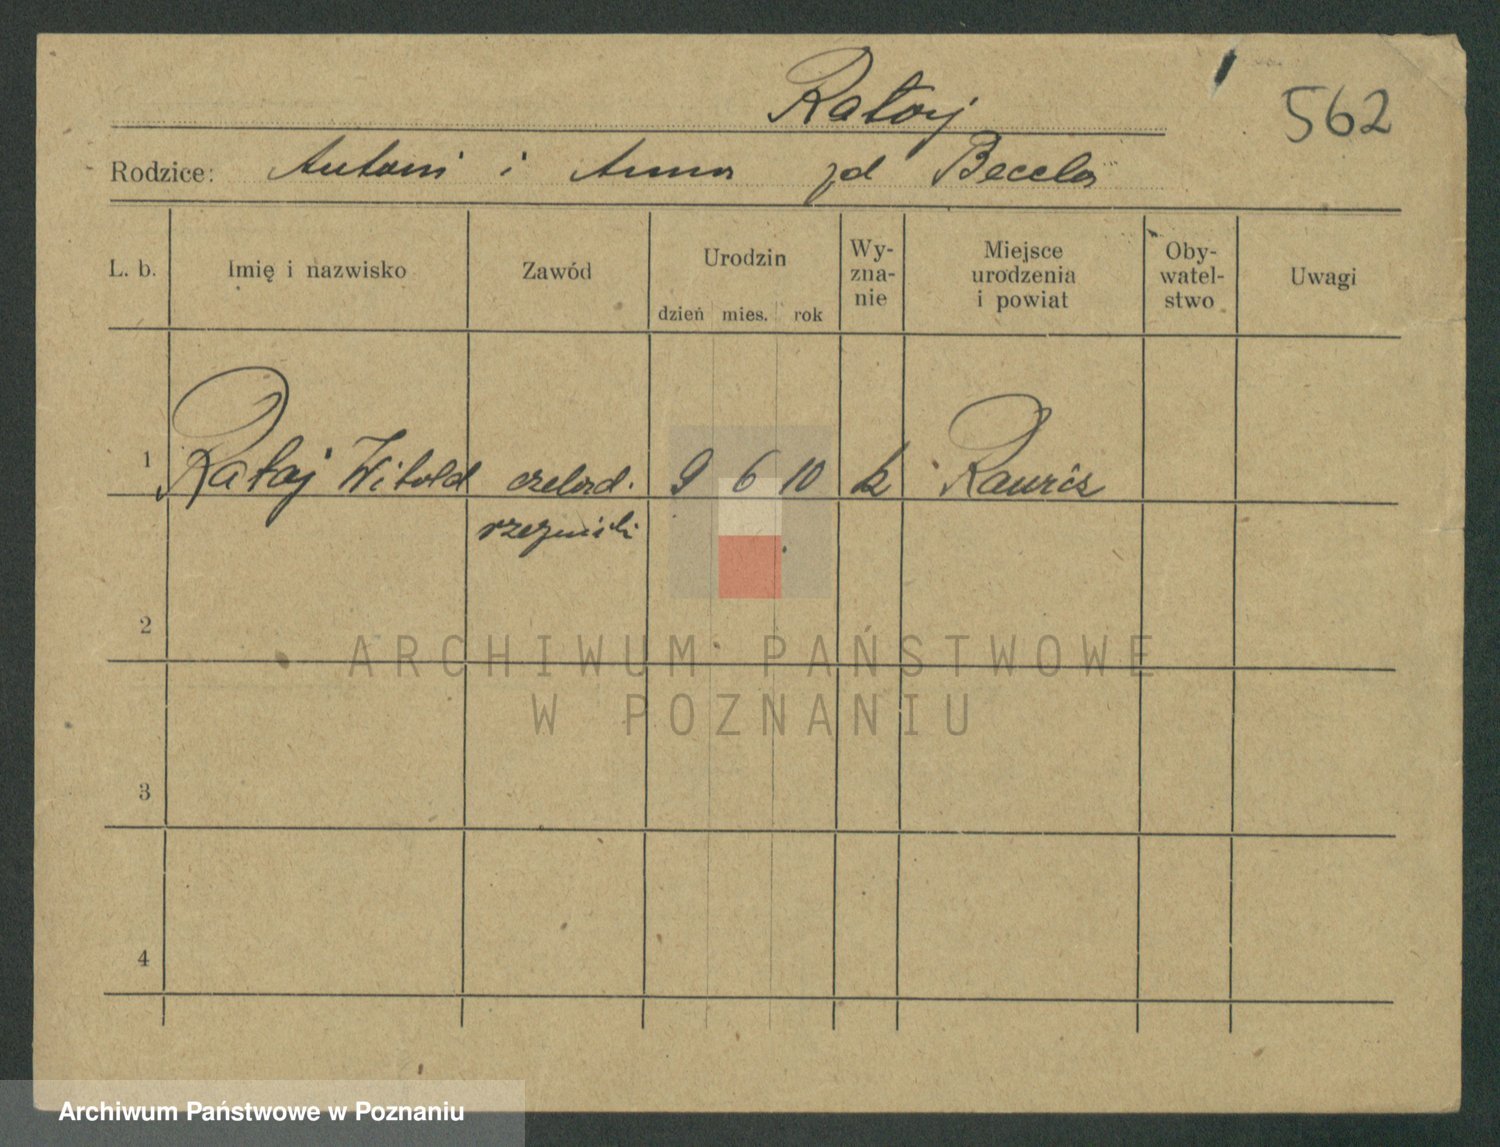 Rataj
562
Rodzice: Antoni i Anna zd Becela
L. b. Imię i nazwisko Zawód Urodzin dzień mies. rok Wy-zna-nie Miejsce urodzenia i powiat Oby-watel-stwo Uwagi
1 Rataj Witold czelad. 9 6 10 k Rawicz
rzeźnicki
2
ARCHIWUM PAŃSTWOWE
W POZNANIU
3
4
Archiwum Państwowe w Poznaniu